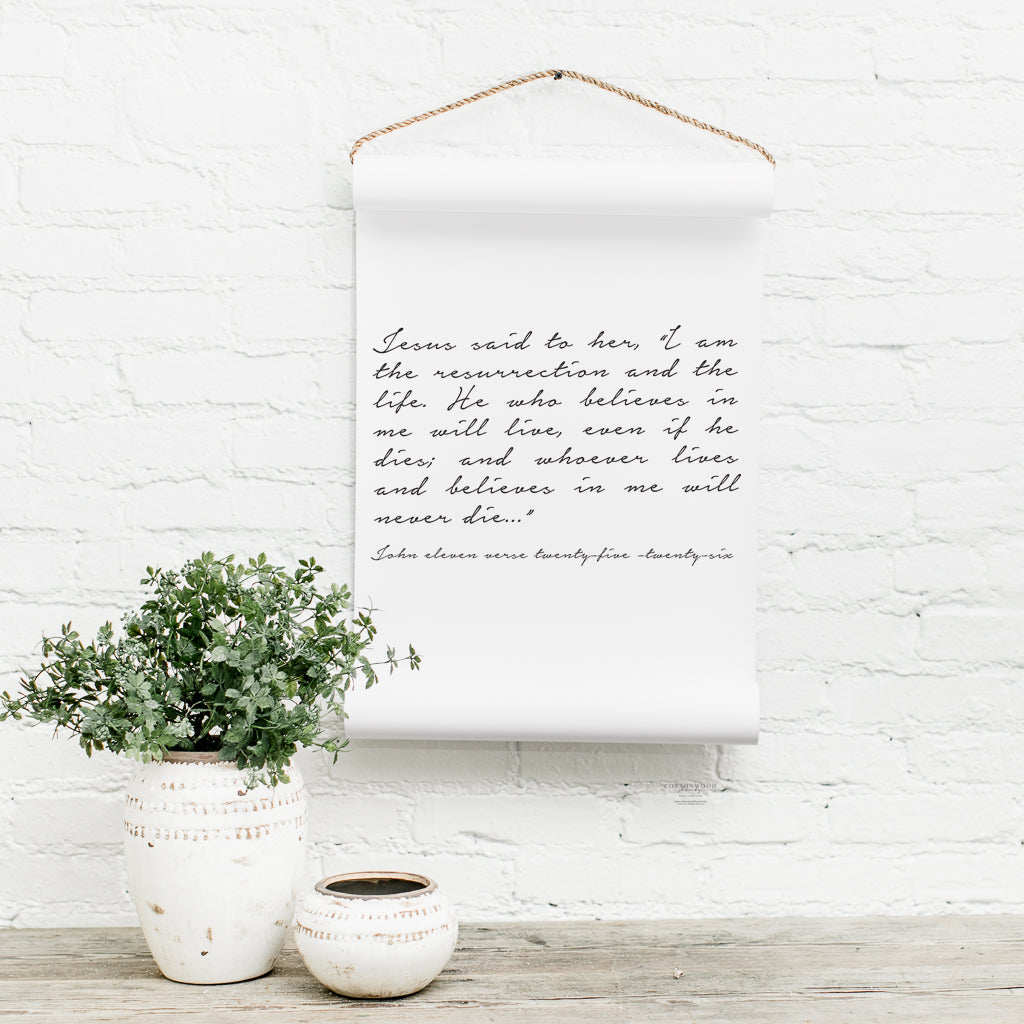 Jesus said to her, "I am
the resurrection and the
life. He who believes in
me will live, even if he
dies; and whoever lives
and believes in me will
never die..."
John eleven verse twenty-five -twenty-six
COTTONWOOD